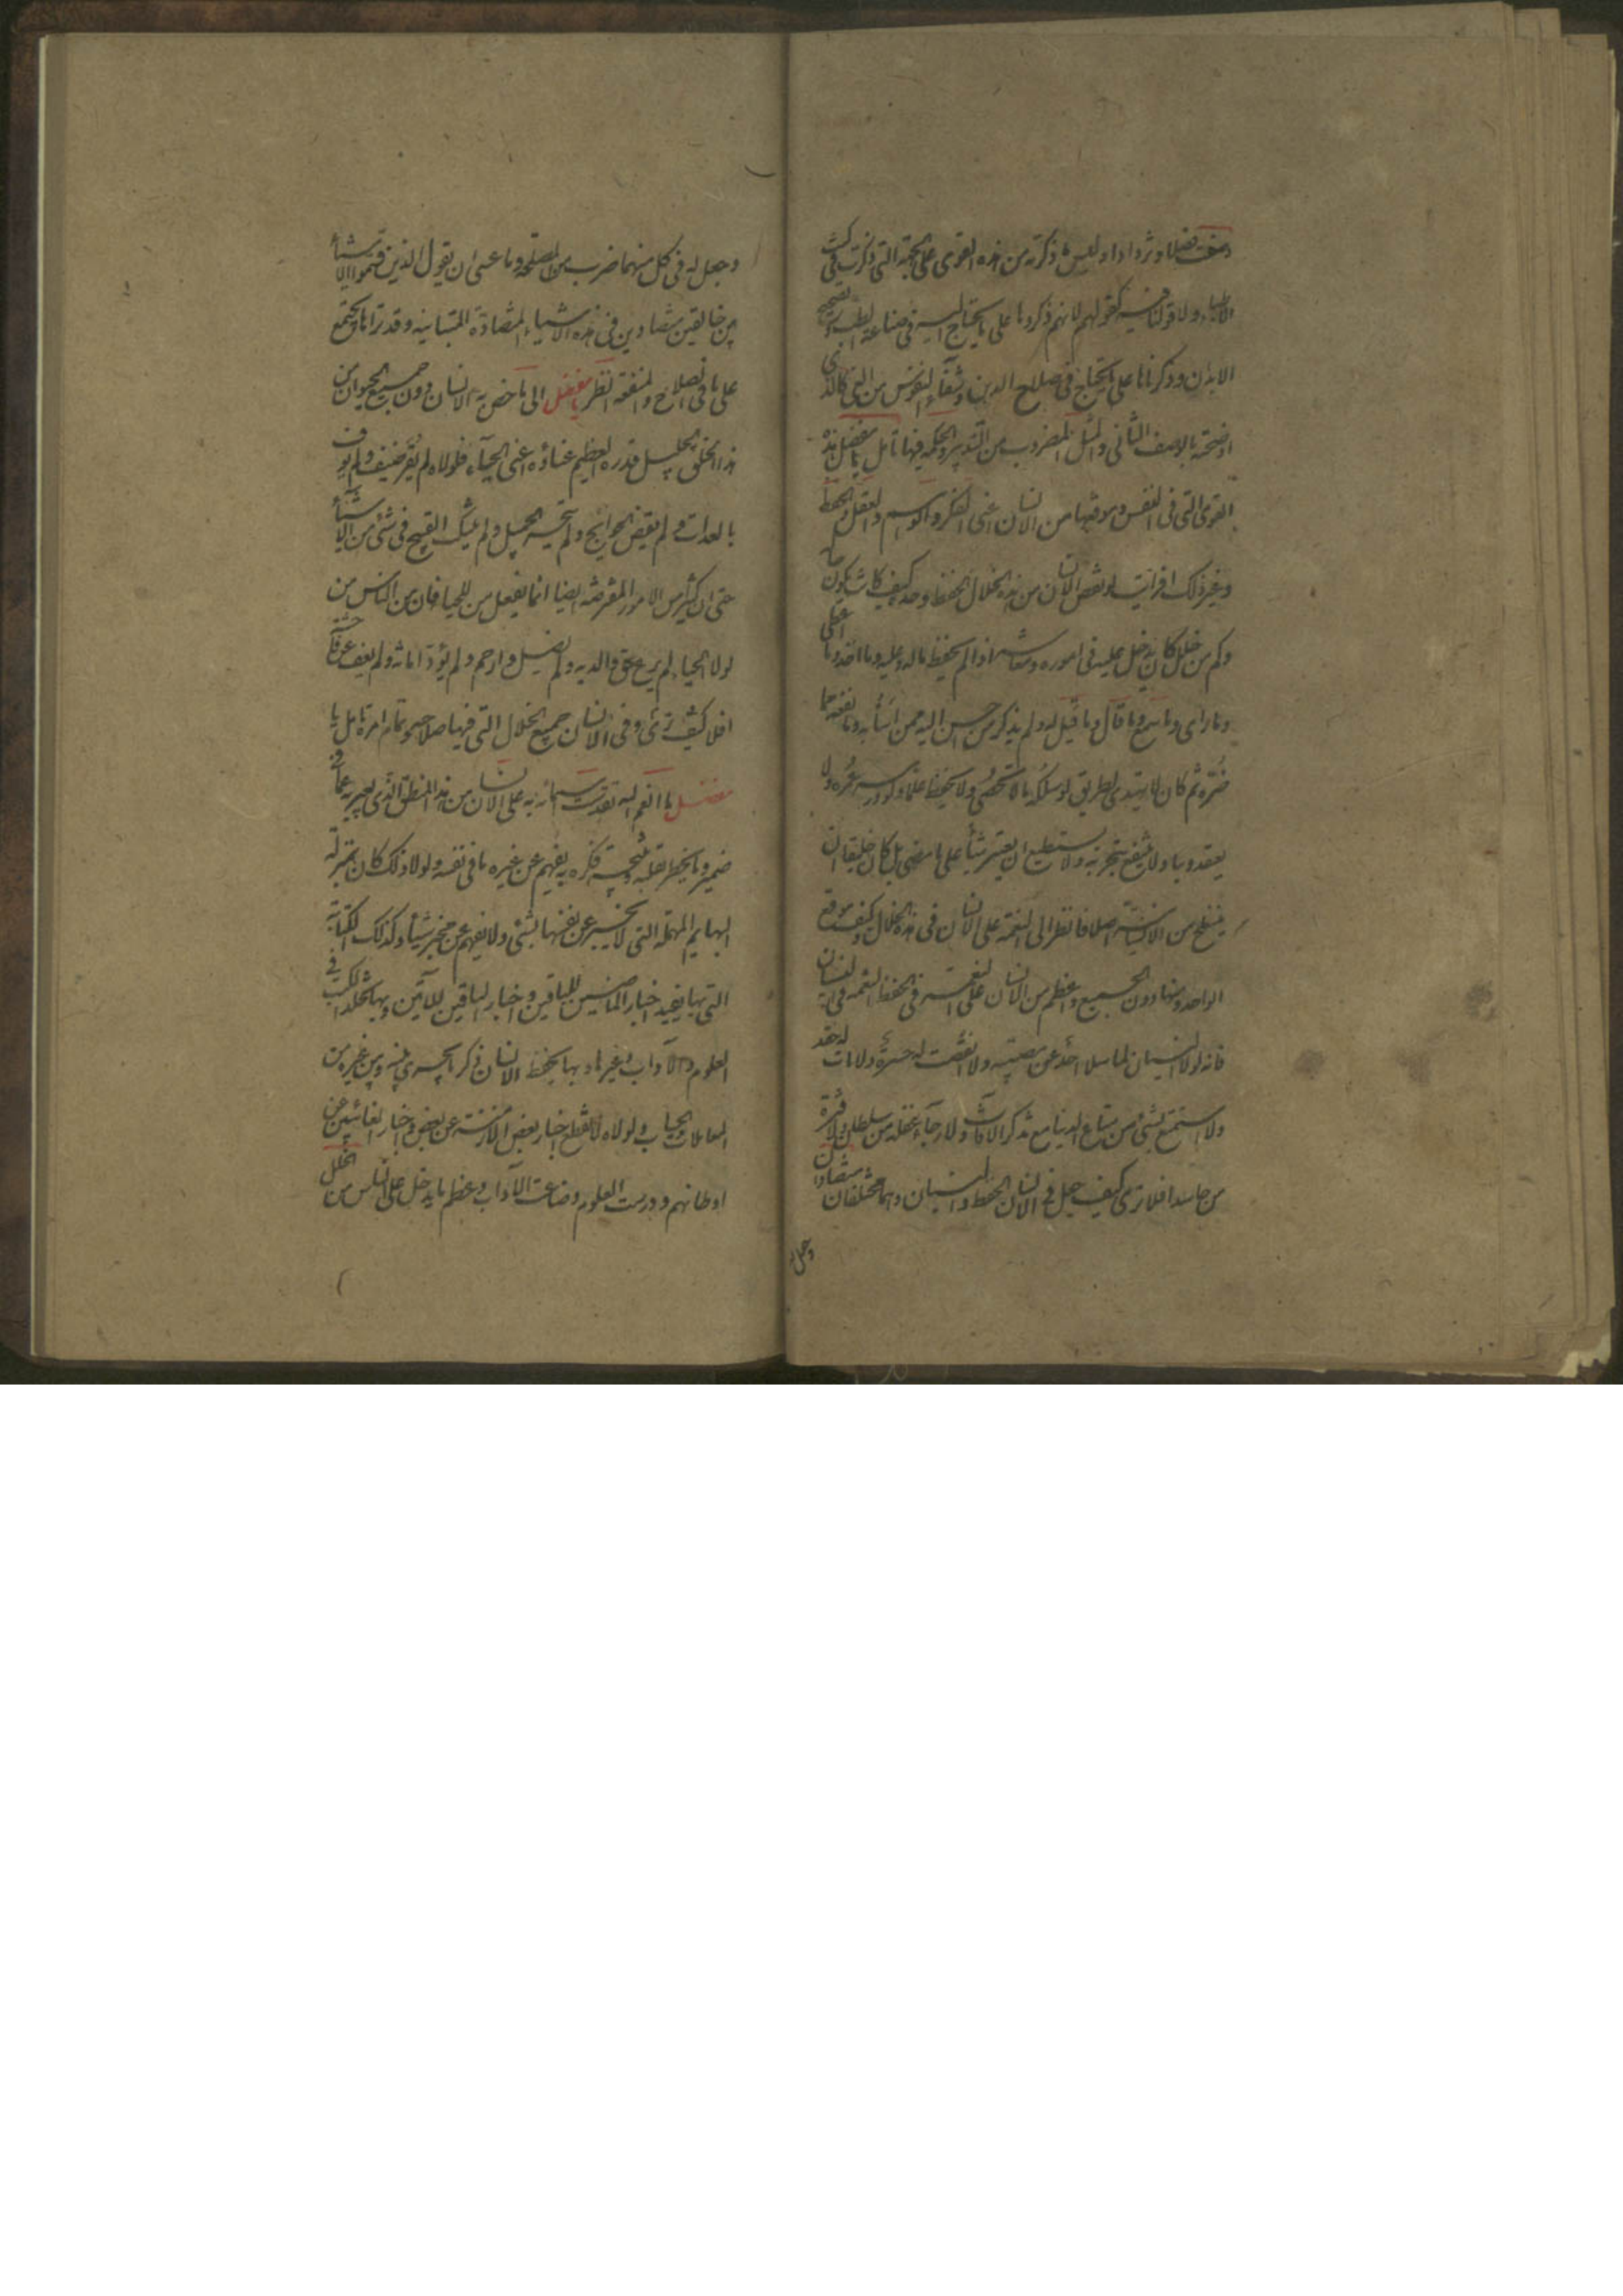 وصفت فضلا وتزدادا وليس ما ذكرته من هذه القوى على الجهة التي ذكرت في كتب
الاطباء ولا قولنا فيه كقولهم لانهم ذكروها على ما يحتاج اليه في صناعة الطب وتصحيح
الابدان وذكرناها على ما يحتاج في صلاح الدين وشفاء النفوس من الغي كالذي
اوضحته بالوصف الثاني والمثل المضروب من التدبير والحكمة فيها تامل يا مفضل هذه
القوى التي في النفس وموقعها من الانسان اعني الفكر والوهم والعقل والحفظ
وغير ذلك افرايت لو نقص الانسان من هذه الخلال الحفظ وحده كيف كانت تكون حاله
وكم من خلل كان يدخل عليه في اموره ومعاشه اذا لم يحفظ ماله وعليه وما اخذه وما اعطى
وما راى وما سمع وما قال وما قيل له ولم يذكر من احسن اليه ممن اسأ به وما نفعه مما
ضره ثم كان لا يهتدي لطريق لو سلكه ما لا يحصى ولا يحفظ علما ولو درسه عمره ولا
يعتقد دينا ولا ينتفع بتجربة ولا يستطيع ان يعتبر شيأ على ما مضى بل كان خليقا ان
ينسلخ من الانسانية اصلا فانظر الى النعمة على الانسان في هذه الخلال وكيف موقع
الواحدة منها دون الجميع واعظم من الانسان على النعمة في الحفظ النعمة في النسيان
فانه لولا النسيان لما سلا احد عن مصيبته ولا انقضت له حسرة ولا مات له حقد
ولا استمتع بشئ من متاع الدنيا مع تذكر الآفات ولا رجاء غفلة من سلطان ولا فترة
من حاسد افلا ترى كيف جعل في الانسان الحفظ والنسيان وهما مختلفان متضادان
وجعل له
وجعل له في كل منهما ضرب من المصلحة وما عسى ان يقول الذين قسموا الاشيأ
بين خالقين متضادين في هذه الاشياء المتضادة المتباينة وقد تراها تجتمع
على ما فيه الصلاح والمنفعة انظر يا مفضل الى ما خص به الانسان دون جميع الحيوان من
هذا الخلق الجليل قدره العظيم غناؤه اعني الحياء فلولاه لم يقر ضيف ولم يوف
بالعدات ولم تقض الحوايج ولم يتحر الجميل ولم يتنكب القبيح في شئ من الاشيأ
حتى ان كثيرا من الامور المفترضة ايضا انما يفعل من للحيا فان من الناس من
لولا الحيا لم يرع حق والديه ولم يصل ذا رحم ولم يؤد امانة ولم يعف عن فاحشة
افلا ترى كيف وفى الانسان جميع الخلال التي فيها صلاحه وتمام امره تامل يا
مفضل ما انعم الله تقدست اسمائه به على الانسان من هذا المنطق الذي يعبر به عما في
ضميره وما يخطر بقلبه ونتيجة فكره به يفهم عن غيره ما في نفسه ولولا ذلك كان بمنزلة
البهايم المهملة التي لا تخبر عن نفسها بشئ ولا تفهم عن مخبر شيأ وكذلك الكتابة
التي بها تقيد اخبار الماضين للباقين واخبار الباقين للآتين وبها تخلد الكتب في
العلوم والآداب وغيرها وبها يحفظ الانسان ذكر ما يجري بينه وبين غيره من
المعاملات والحساب ولولاه لانقطع اخبار بعض الازمنة عن بعض واخبار الغائبين عن
اوطانهم ودرست العلوم وضاعت الآداب وعظم ما يدخل على الناس من الخلل